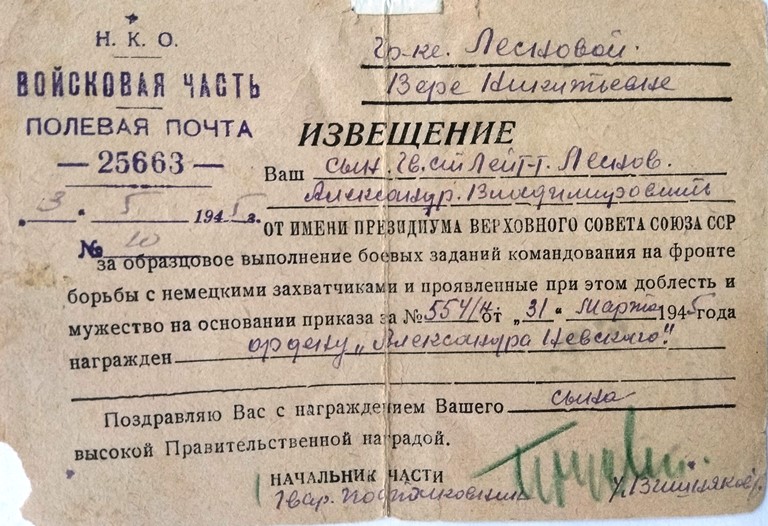 Н. К. О.
ВОЙСКОВАЯ ЧАСТЬ
ПОЛЕВАЯ ПОЧТА
— 25663 —
„3“ 5 1945 г.
№ 10
Гр-ке. Лесковой.
Вере Никитьевне
ИЗВЕЩЕНИЕ
Ваш сын. Гв. ст Лейт-т. Лесков.
Александр. Владимирович
ОТ ИМЕНИ ПРЕЗИДИУМА ВЕРХОВНОГО СОВЕТА СОЮЗА ССР
за образцовое выполнение боевых заданий командования на фронте
борьбы с немецкими захватчиками и проявленные при этом доблесть и
мужество на основании приказа за № 554/н от „31“ марта 1945 года
награжден орденом „Александра Невского“.
Поздравляю Вас с награждением Вашего сына
высокой Правительственной наградой.
НАЧАЛЬНИК ЧАСТИ
Гвар. Подполковник